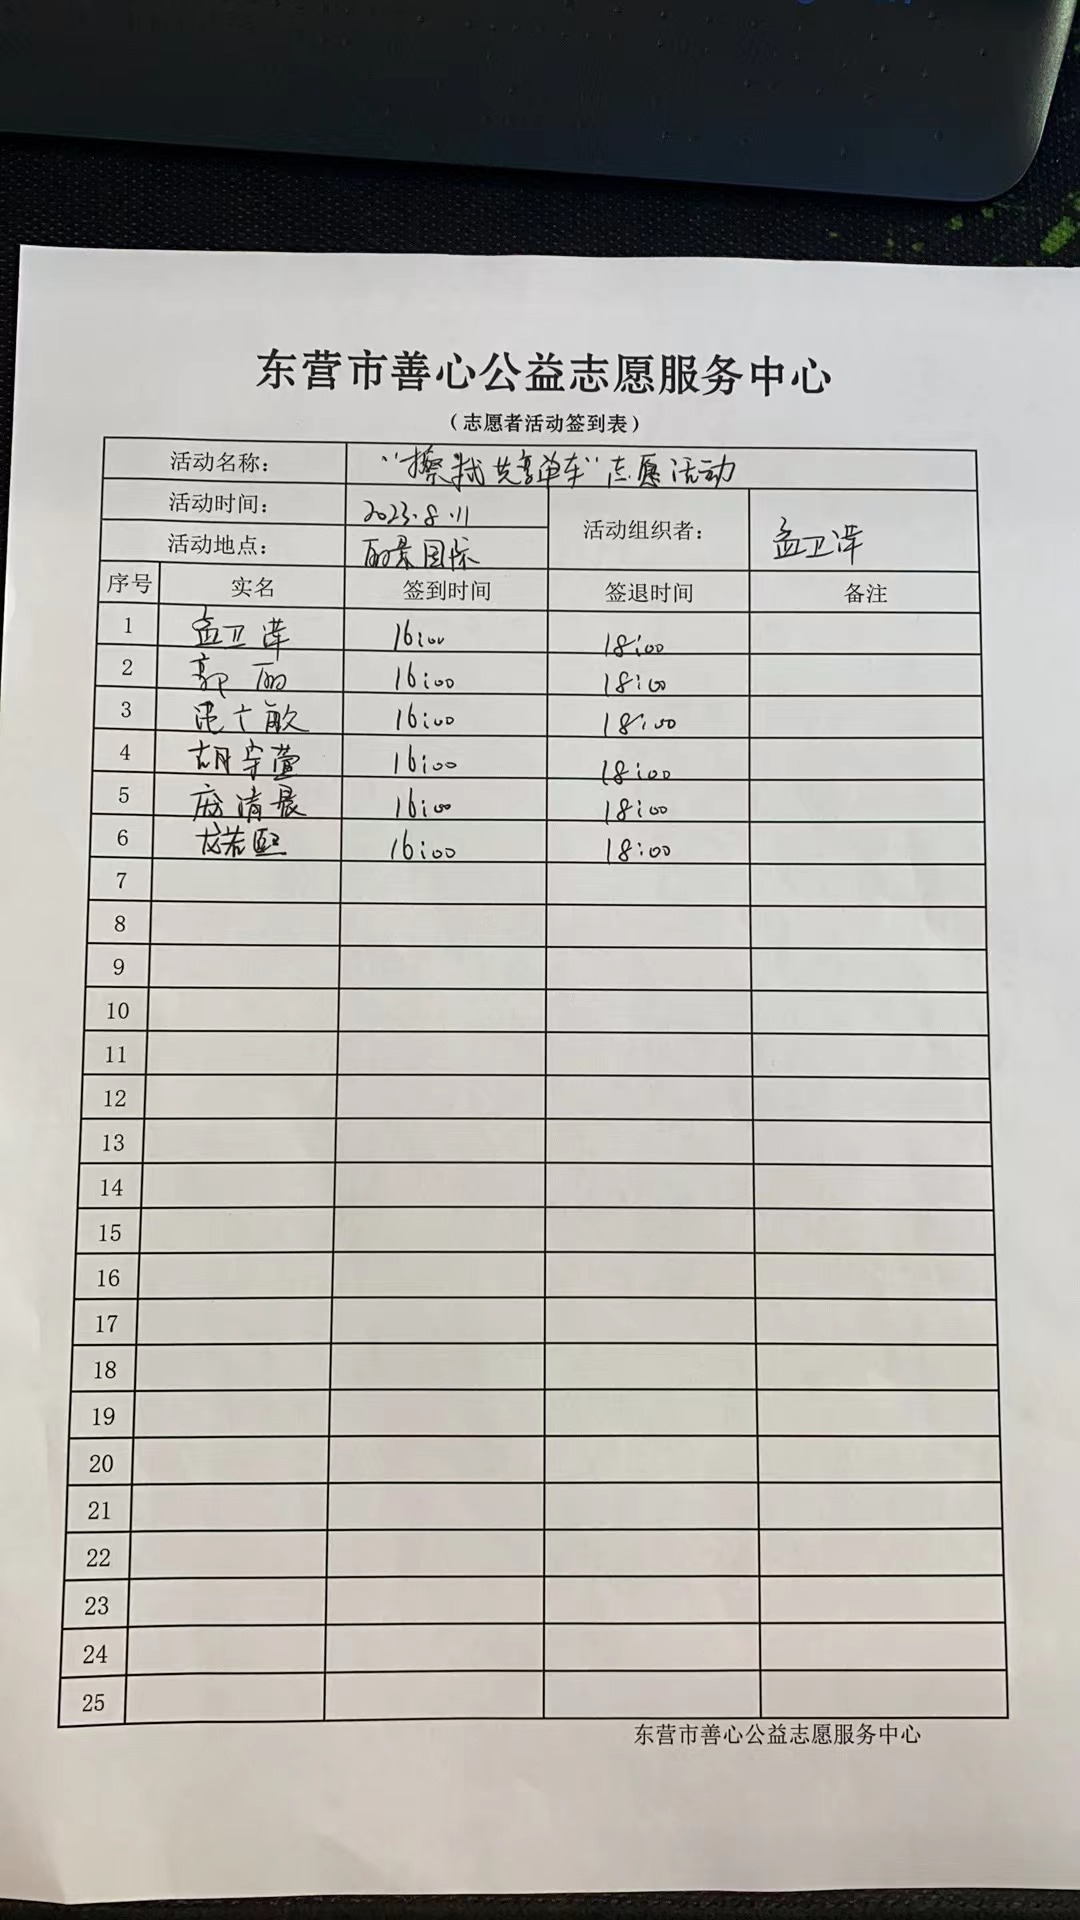 东营市善心公益志愿服务中心
（志愿者活动签到表）
活动名称： “擦拭共享单车”志愿活动
活动时间： 2023.8.11 活动组织者： 孟卫萍
活动地点： 丽景国际
序号 实名 签到时间 签退时间 备注
1 孟卫萍 16:00 18:00
2 郭丽 16:00 18:00
3 16:00 18:00
4 胡宇萱 16:00 18:00
5 庞清晨 16:00 18:00
6 16:00 18:00
7
8
9
10
11
12
13
14
15
16
17
18
19
20
21
22
23
24
25
东营市善心公益志愿服务中心